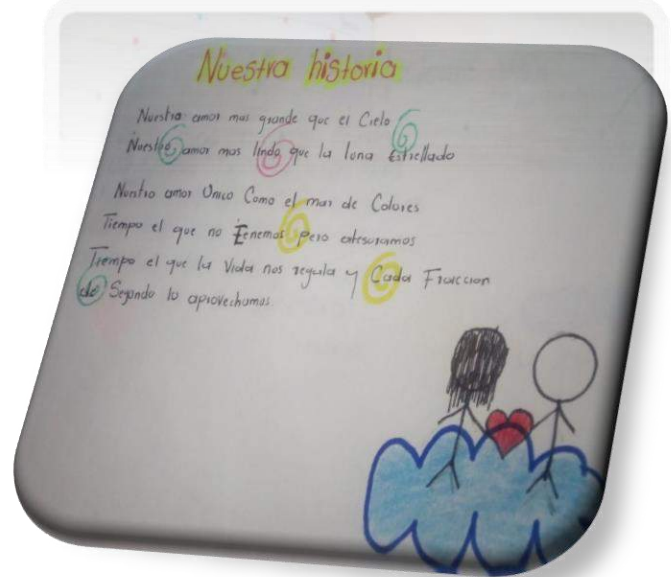 Nuestra historia
Nuestro amor mas grande que el Cielo
Nuestro amor mas lindo que la luna Estrellado
Nuestro amor Unico Como el mar de Colores
Tiempo el que no Tenemos pero atesoramos
Tiempo el que la Vida nos regala y Cada Fraccion
de Segundo lo aprovechamos